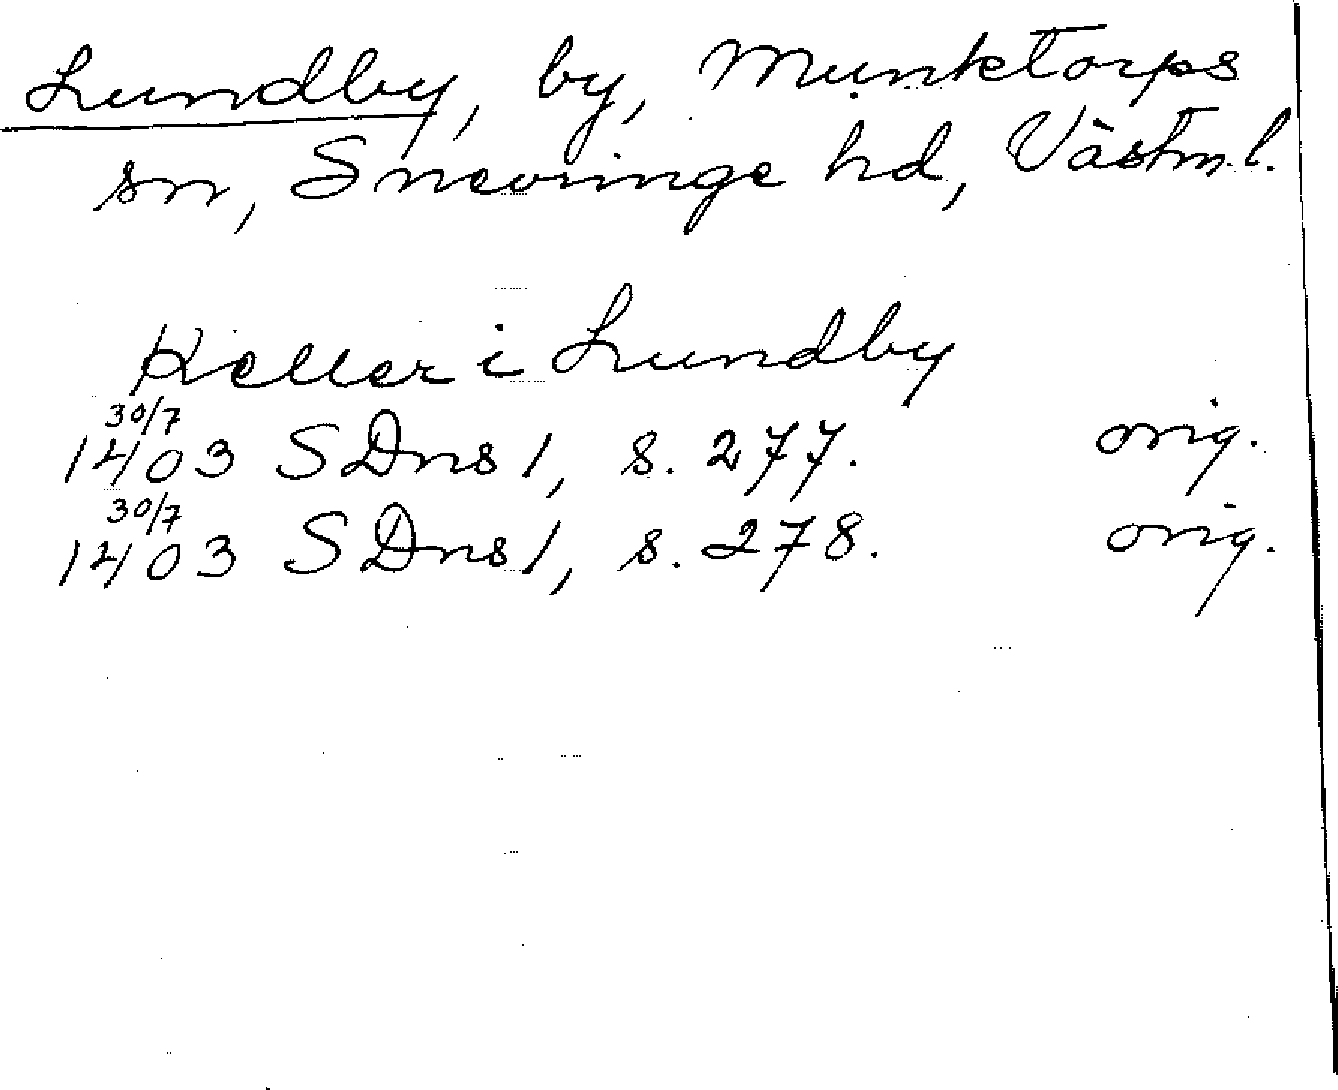 Lundby, by, Munktorps
sn, Snevringe hd, Västm.l.
Keller i Lundby
30/7
1403 SDns 1, s. 277. orig.
30/7
1403 SDns 1, s. 278. orig.